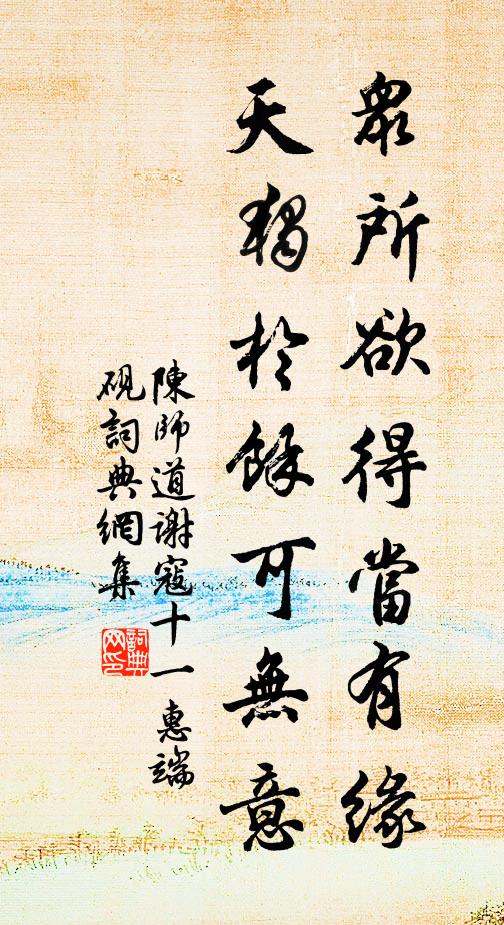 眾所欲得當有緣
天獨於餘可無意
陳師道謝寇十一惠端
硯詞典網集
詞典網印